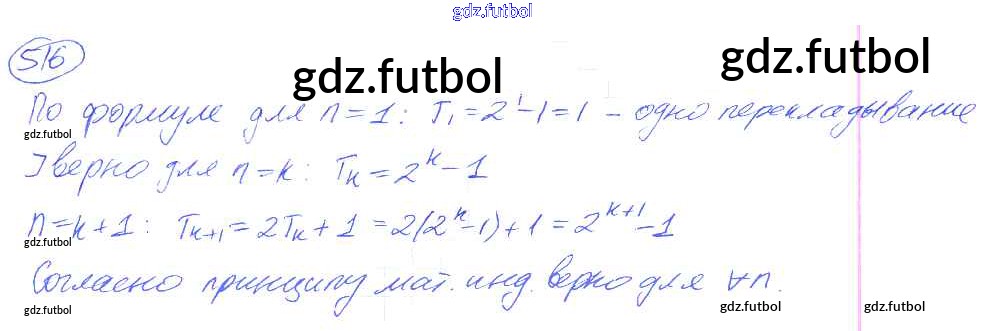 gdz.futbol
516
gdz.futbol gdz.futbol
По формуле для n=1: T₁=2¹-1=1 - одно перекладывание
gdz.futbol
] верно для n=k: Tₖ=2ᵏ-1
n=k+1: Tₖ₊₁=2Tₖ+1=2(2ᵏ-1)+1=2ᵏ⁺¹-1
gdz.futbol
Согласно принципу мат. инд. верно для ∀n.
gdz.futbol gdz.futbol gdz.futbol